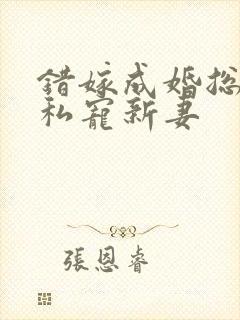 錯嫁成婚总
私寵新妻
張恩睿